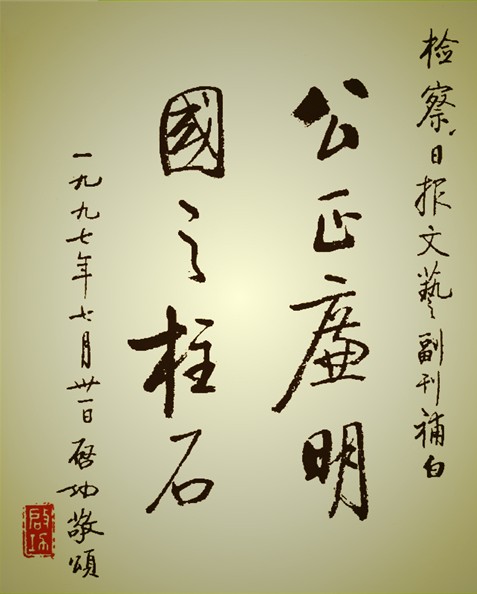 检察日报文藝副刊補白
公正廉明
國之柱石
一九九七年七月卅一日啓功敬頌
啟功